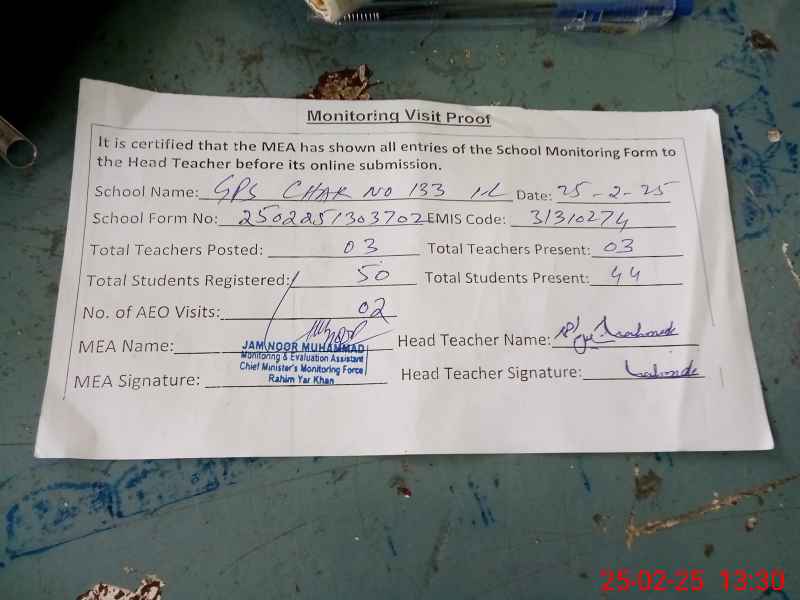 Monitoring Visit Proof
It is certified that the MEA has shown all entries of the School Monitoring Form to
the Head Teacher before its online submission.
School Name: GPS CHAK NO 133 1-L Date: 25-2-25
School Form No: 2502251303702 EMIS Code: 31310274
Total Teachers Posted: 03 Total Teachers Present: 03
Total Students Registered: 50 Total Students Present: 44
No. of AEO Visits: 02
MEA Name: Head Teacher Name:
JAM NOOR MUHAMMAD
Monitoring & Evaluation Assistant
Chief Minister's Monitoring Force
Rahim Yar Khan
MEA Signature: Head Teacher Signature:
25-02-25 13:30